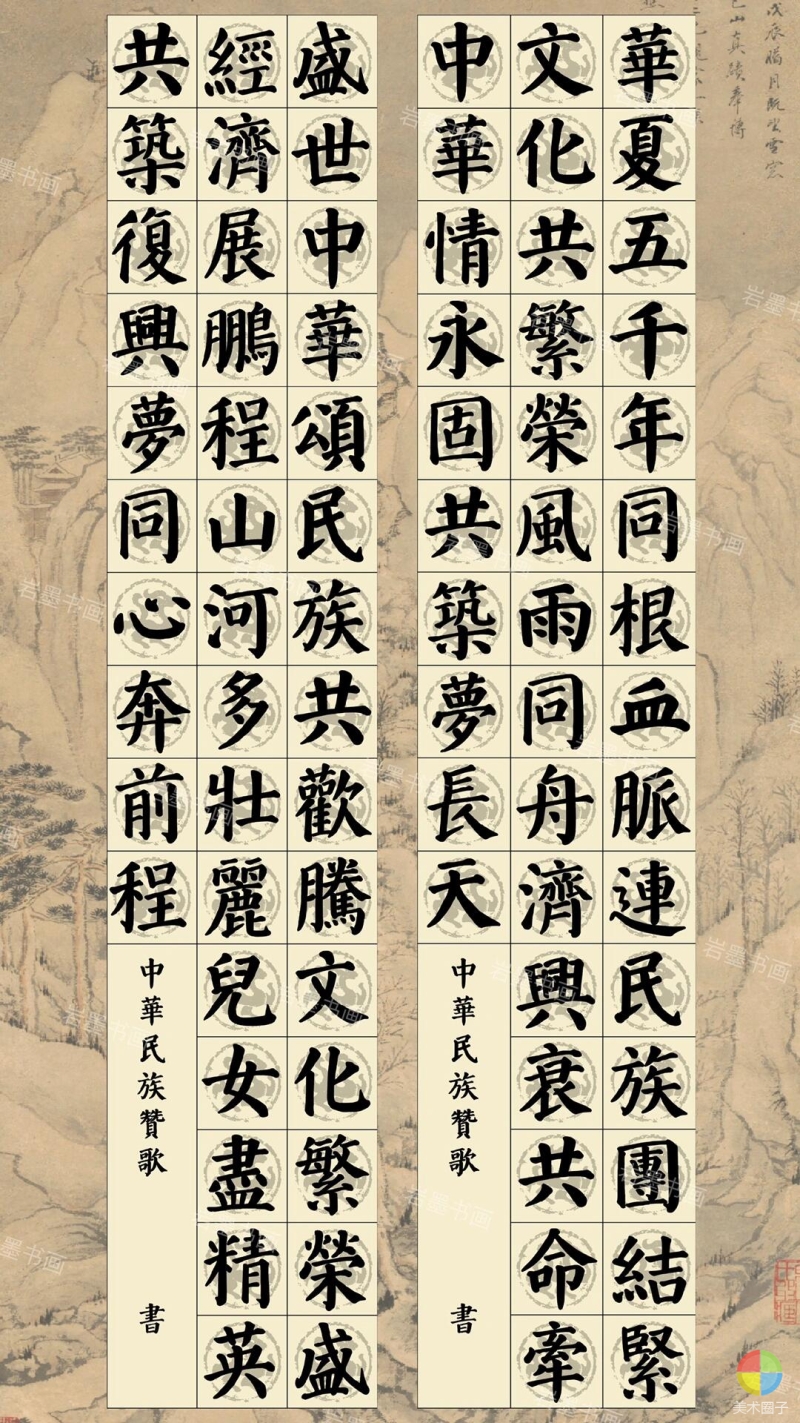 華夏五千年同根血脈連民族團結緊
文化共繁榮風雨同舟濟興衰共命牽
中華情永固共築夢長天
中華民族贊歌 書
盛世中華頌民族共歡騰文化繁榮盛
經濟展鵬程山河多壯麗兒女盡精英
共築復興夢同心奔前程
中華民族贊歌 書
岩墨书画
美术圈子